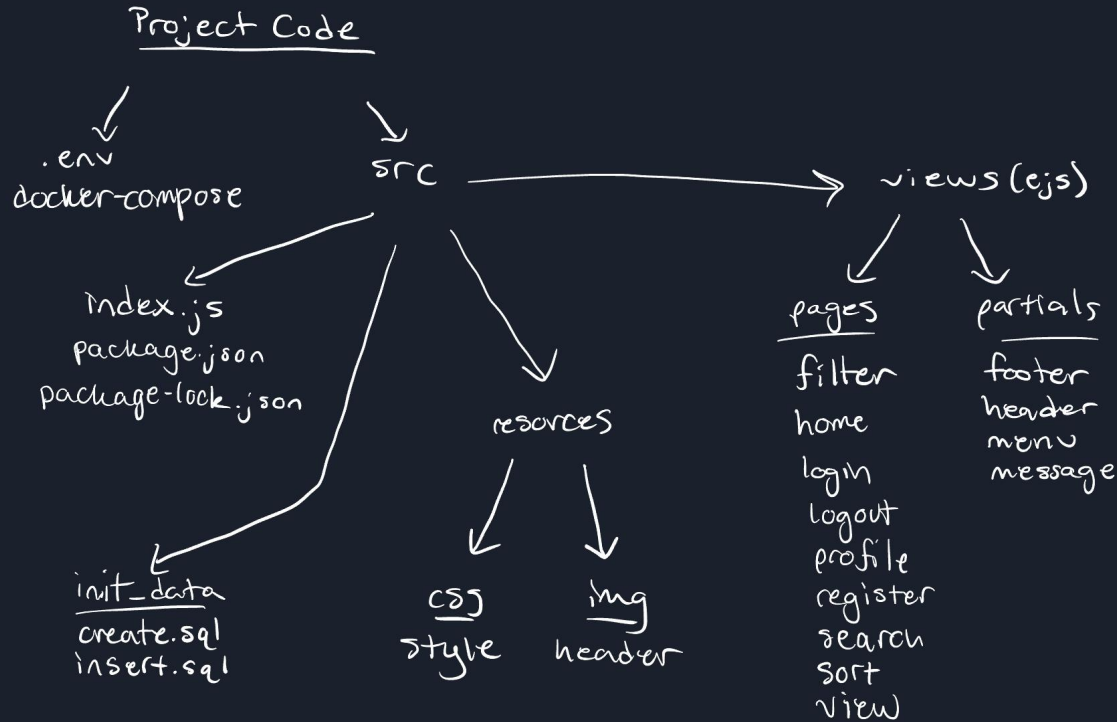 Project Code
.env
docker-compose
src
views (ejs)
index.js
package.json
package-lock.json
resorces
init_data
create.sql
insert.sql
css
style
img
header
pages
filter
home
login
logout
profile
register
search
sort
view
partials
footer
header
menu
message